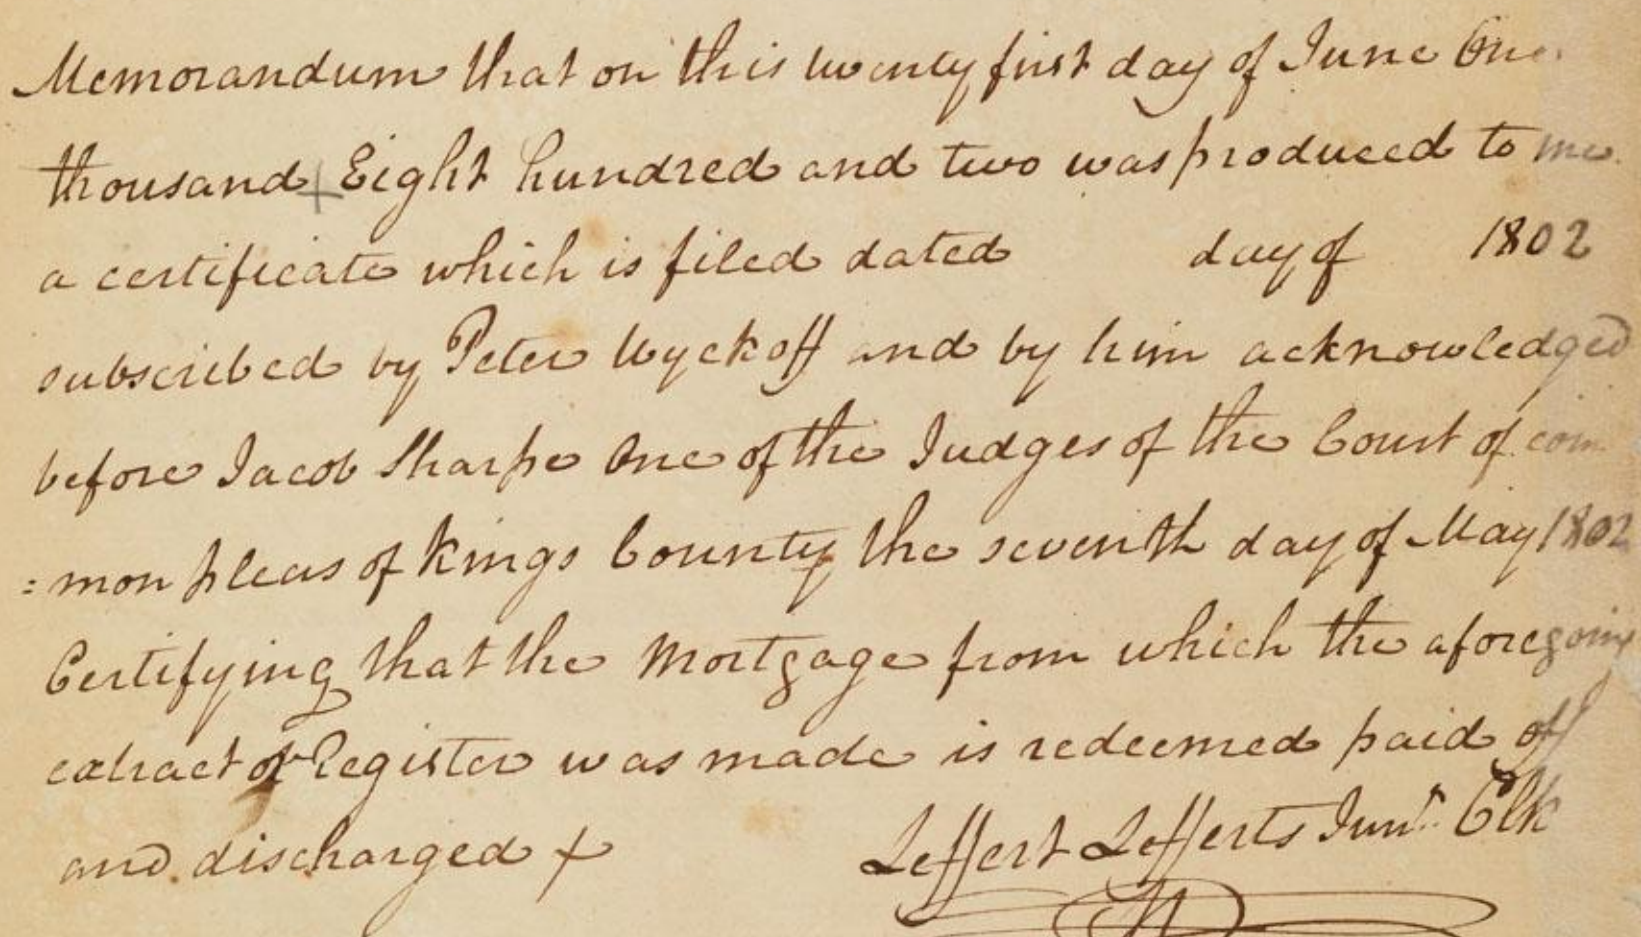 Memorandum that on this twenty first day of June One
thousand + Eight hundred and two was produced to me
a certificate which is filed dated day of 1802
subscribed by Peter Wyckoff and by him acknowledged
before Jacob Sharpe One of the Judges of the Court of com
=mon pleas of Kings County the seventh day of May 1802
Certifying that the Mortgage from which the aforegoing
extract or Register was made is redeemed paid off
and discharged +
Leffert Lefferts Junr. Clk